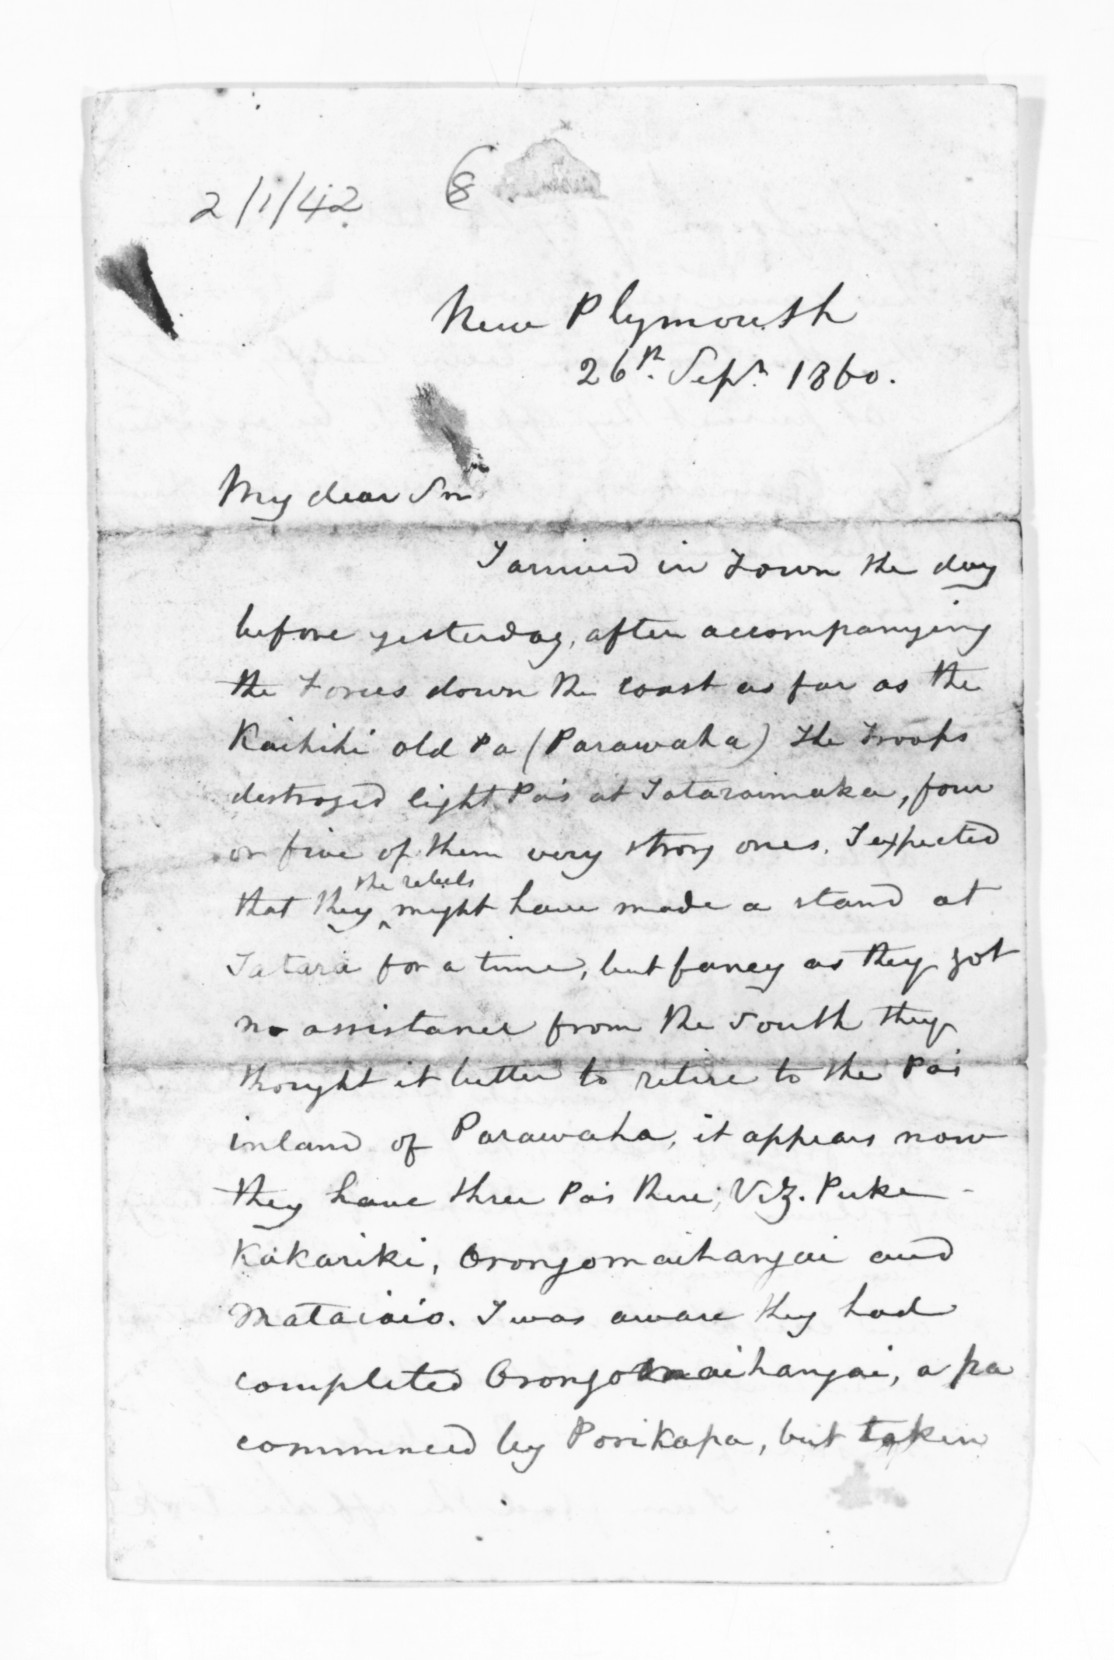 2/1/42
8
New Plymouth
26th. Sepr. 1860.
My dear Sir
I arrived in Town the day
before yesterday, after accompanying
the Forces down the coast as far as the
Kaihihi old Pa (Parawaha) The Troops
destroyed eight Pa's at Tataraimaka, four
or five of them very strong ones. I expected
that they ^the rebels might have made a stand at
Tatara for a time, but fancy as they got
no assistance from the South they
thought it better to retire to the Pa's
inland of Parawaha, it appears now
they have three Pa's there; Viz. Puke-
Kakariki, Orongomaihangai and
Mataiaio. I was aware they had
completed Orongomaihangai, a pa
commenced by Porikapa, but taken